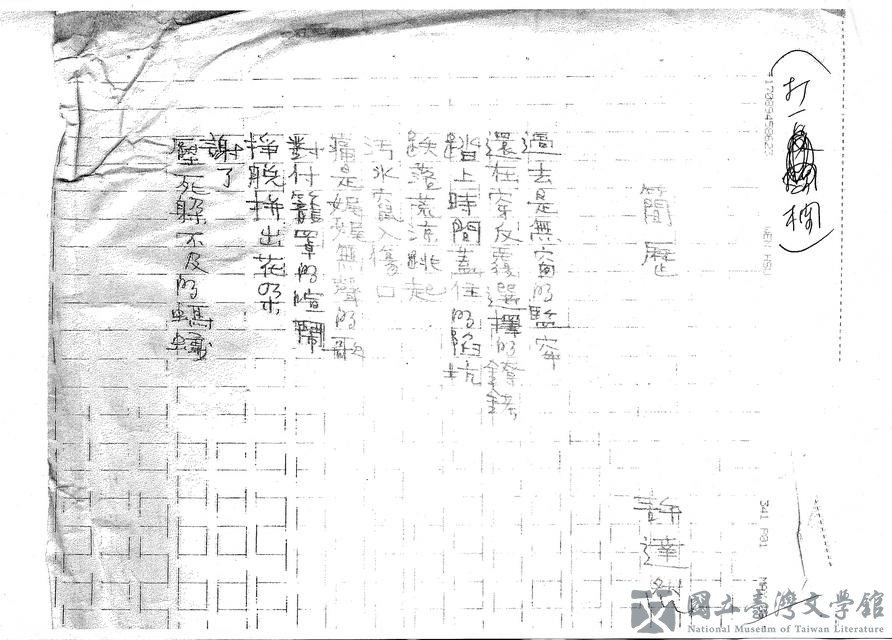 (打一欄)
17089459523 WEN HSU 341 P01
簡歷
許達然
過去是無窗的監牢
還在穿反覆選擇的
踏上時間蓋住的陷坑
跌落荒涼跳起
污水竄入傷口
痛是娓娓無聲的歌
對付籠罩的喧鬧
掙脫拼出花朵
謝了
壓死躲不及的螞蟻
國立臺灣文學館
National Museum of Taiwan Literature